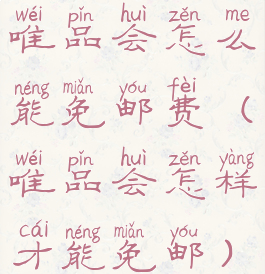 wéi pǐn huì zěn me
唯品会怎么
néng miǎn yóu fèi
能免邮费(
wéi pǐn huì zěn yàng
唯品会怎样
cái néng miǎn yóu
才能免邮)